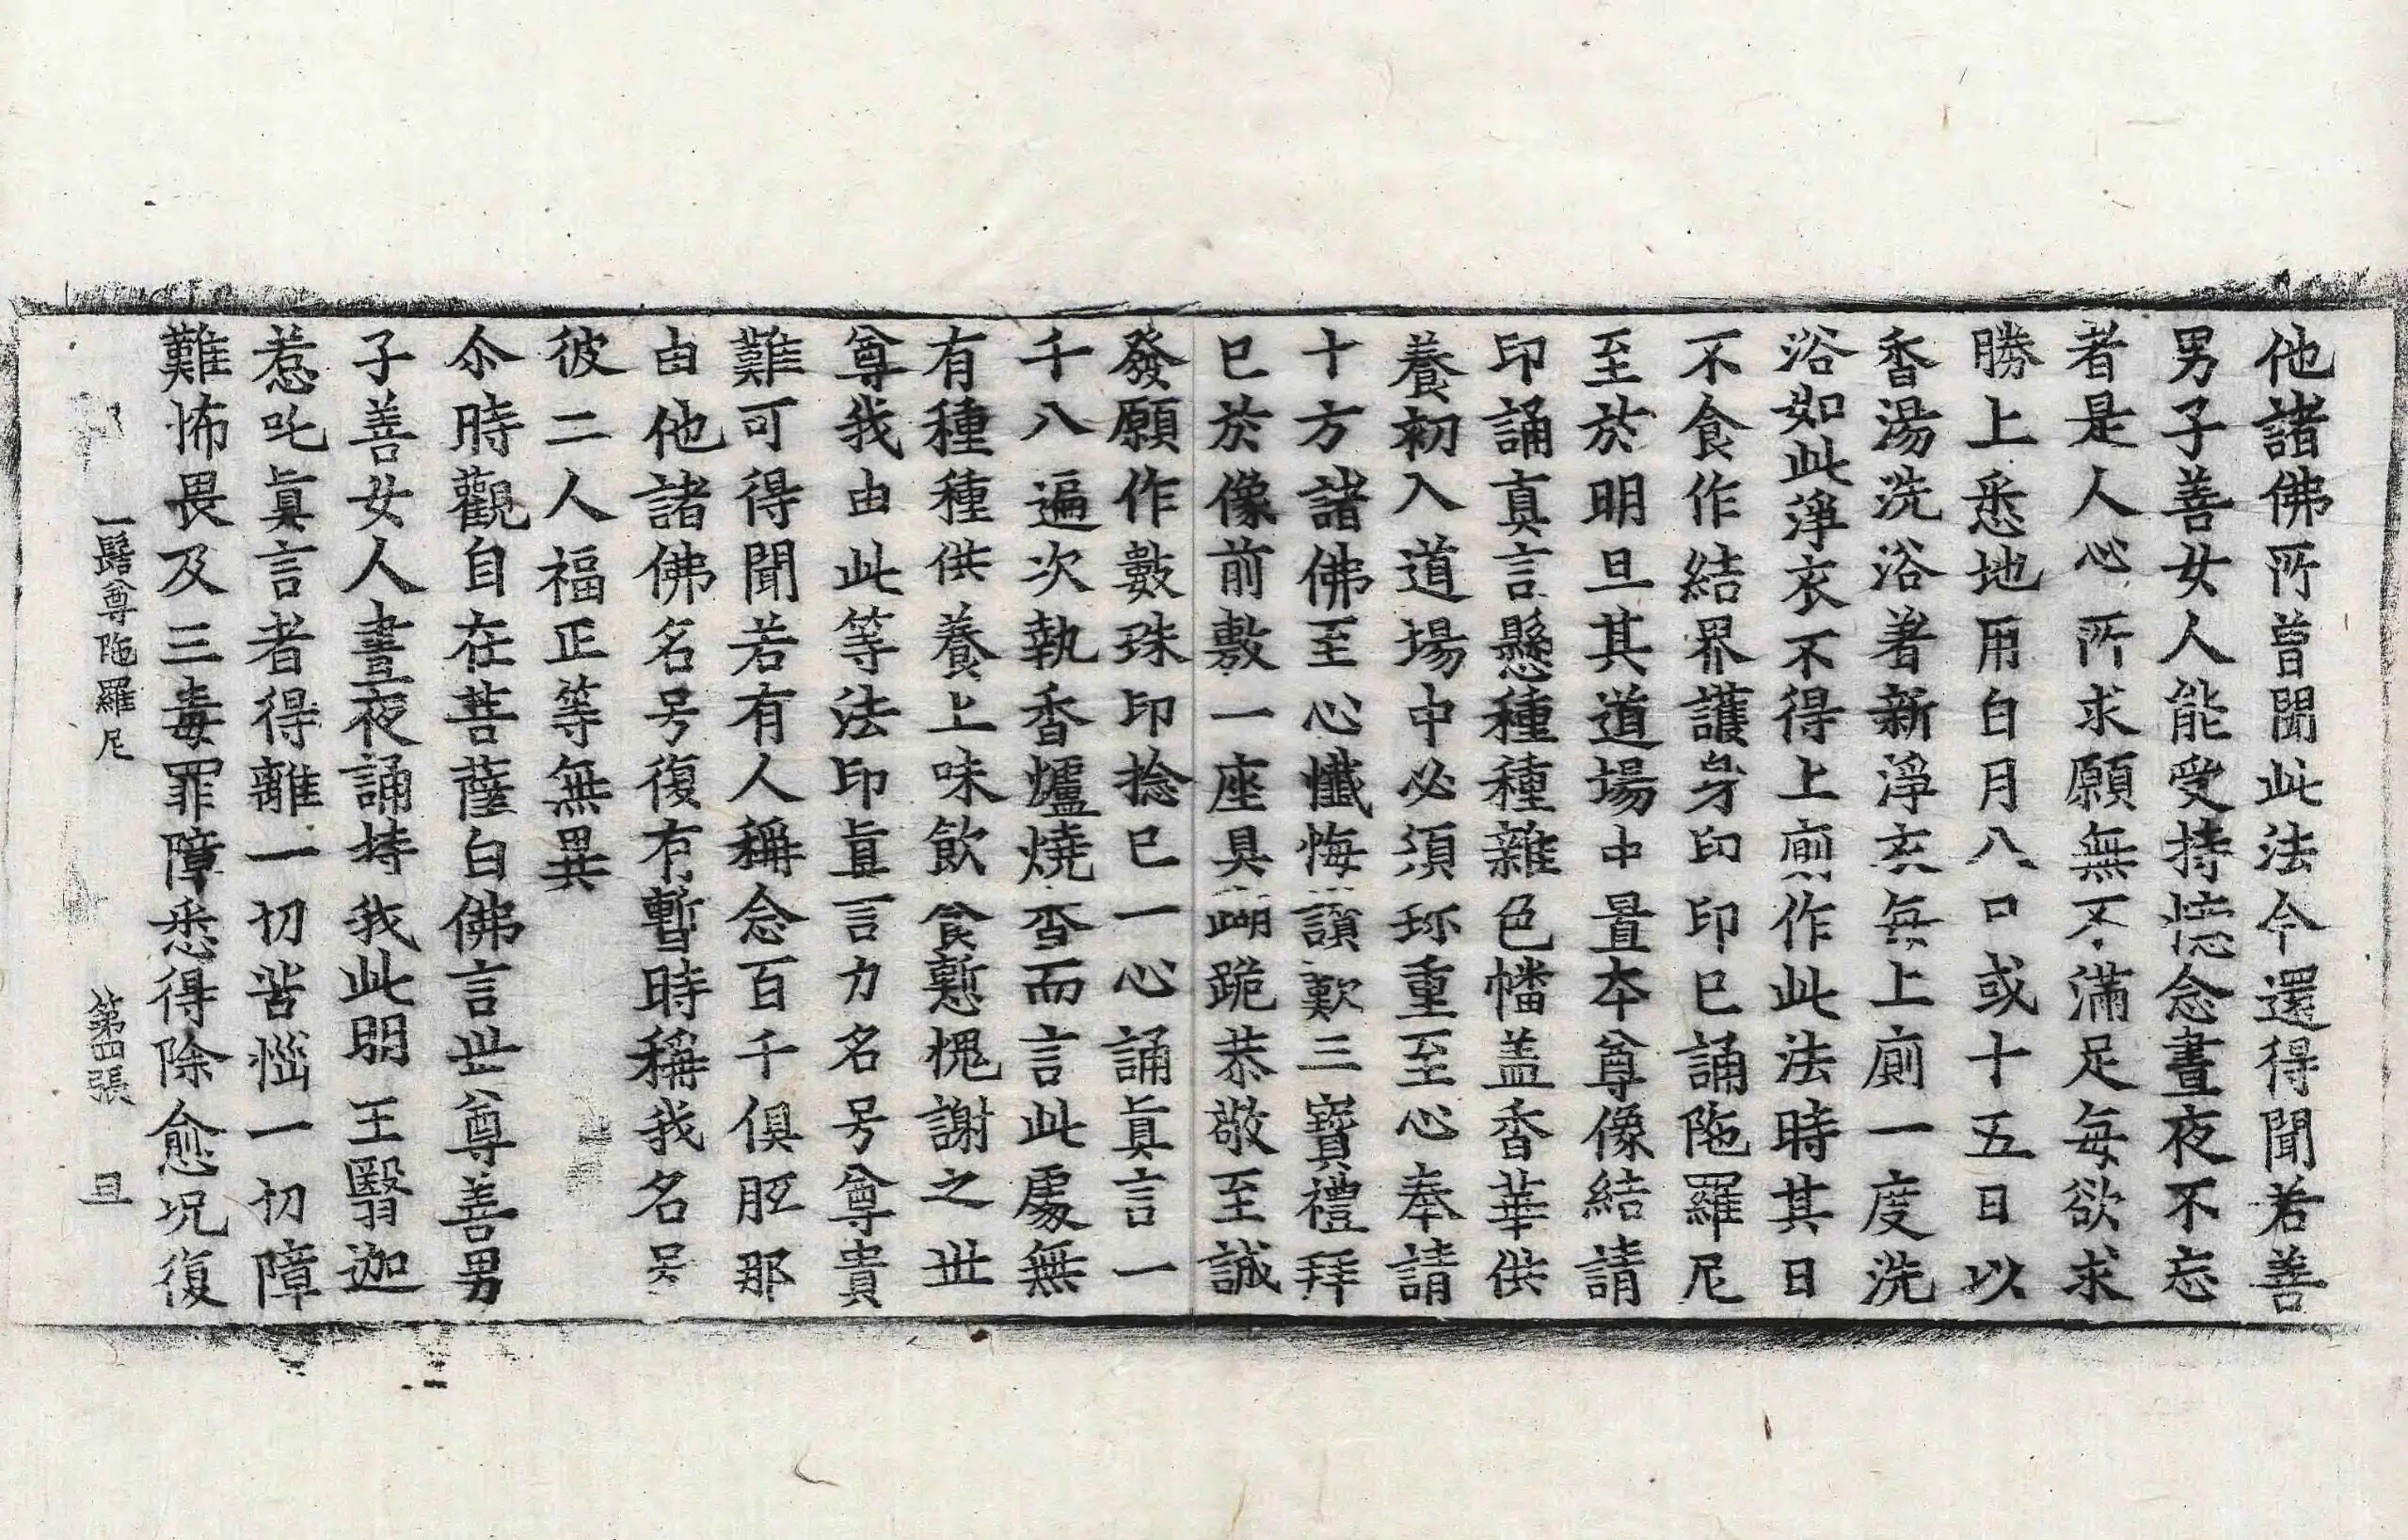 他諸佛所曾聞此法今還得聞若善
男子善女人能受持憶念晝夜不忘
者是人心所求願無不滿足每欲求
勝上悉地用白月八日或十五日以
香湯洗浴著新淨衣每上廁一度洗
浴如此淨衣不得上廁作此法時其日
不食作結界護身印印已誦陁羅尼
至於明旦其道場中置本尊像結請
印誦真言懸種種雜色幡盖香華供
養初入道場中必須珎重至心奉請
十方諸佛至心懺悔讃歎三寶禮拜
已於像前敷一座具䠒跪恭敬至誠
發願作數珠印捻已一心誦眞言一
千八遍次執香爐燒香而言此處無
有種種供養上味飲食慙愧謝之世
尊我由此等法印眞言力名号尊貴
難可得聞若有人稱念百千俱胝那
由他諸佛名号復有暫時稱我名号
彼二人福正等無異
尒時觀自在菩薩白佛言世尊善男
子善女人晝夜誦持我此明王翳迦
惹吒眞言者得離一切苦惱一切障
難怖畏及三毒罪障悉得除愈况復
一髻尊陁羅尼 第四張 旦